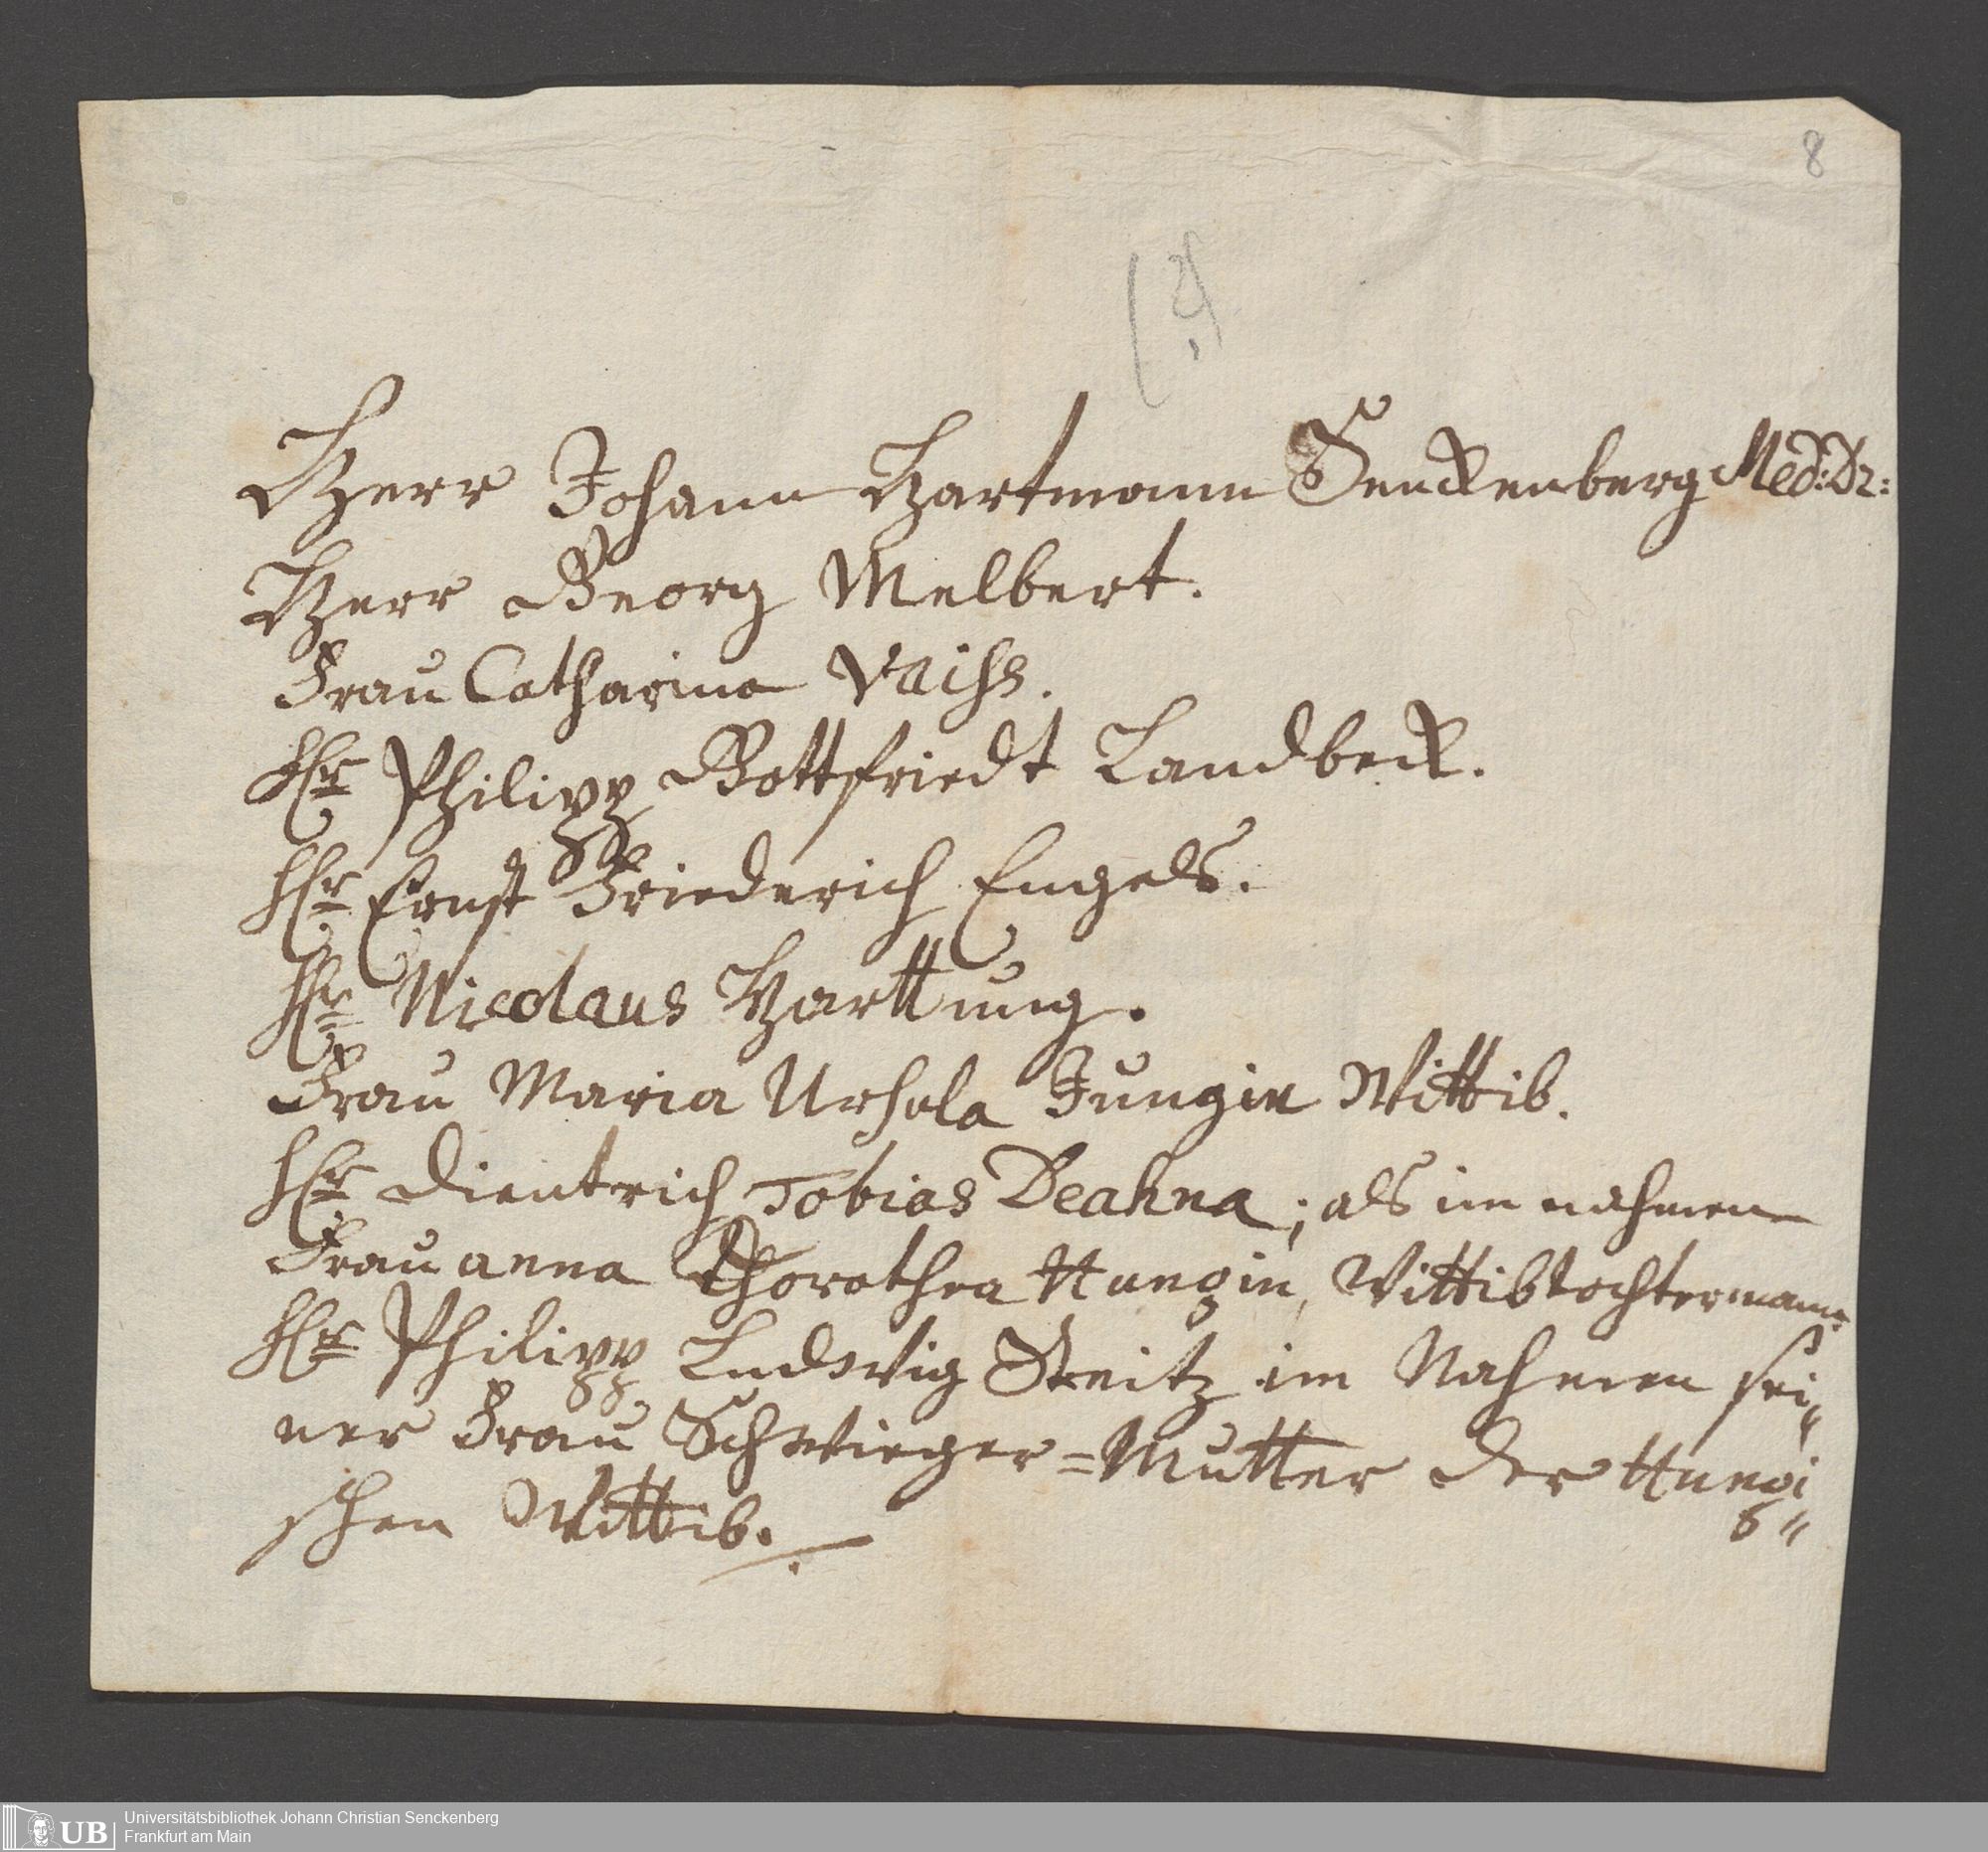 8
(?)
Herr Johann Hartmann Senckenberg Med: Dr:
Herr Georg Melbert.
Frau Catharina Vaihs.
HEr Philipp Gottfriedt Landbeck.
HEr Ernst Friederich Engels.
HEr Nicolaus Harttung.
Frau Maria Ursola Jungin Wittib.
HEr Dientrich Tobias Deahna, als im nahmen
Frau anna Dhorothea Hungin, Wittibtochtermann
HEr Philipp Ludwig Steitz im Nahmen sei„
ner Frau Schwieger=Mutter der Hungi„
schen Wittib.
UB
Universitätsbibliothek Johann Christian Senckenberg
Frankfurt am Main